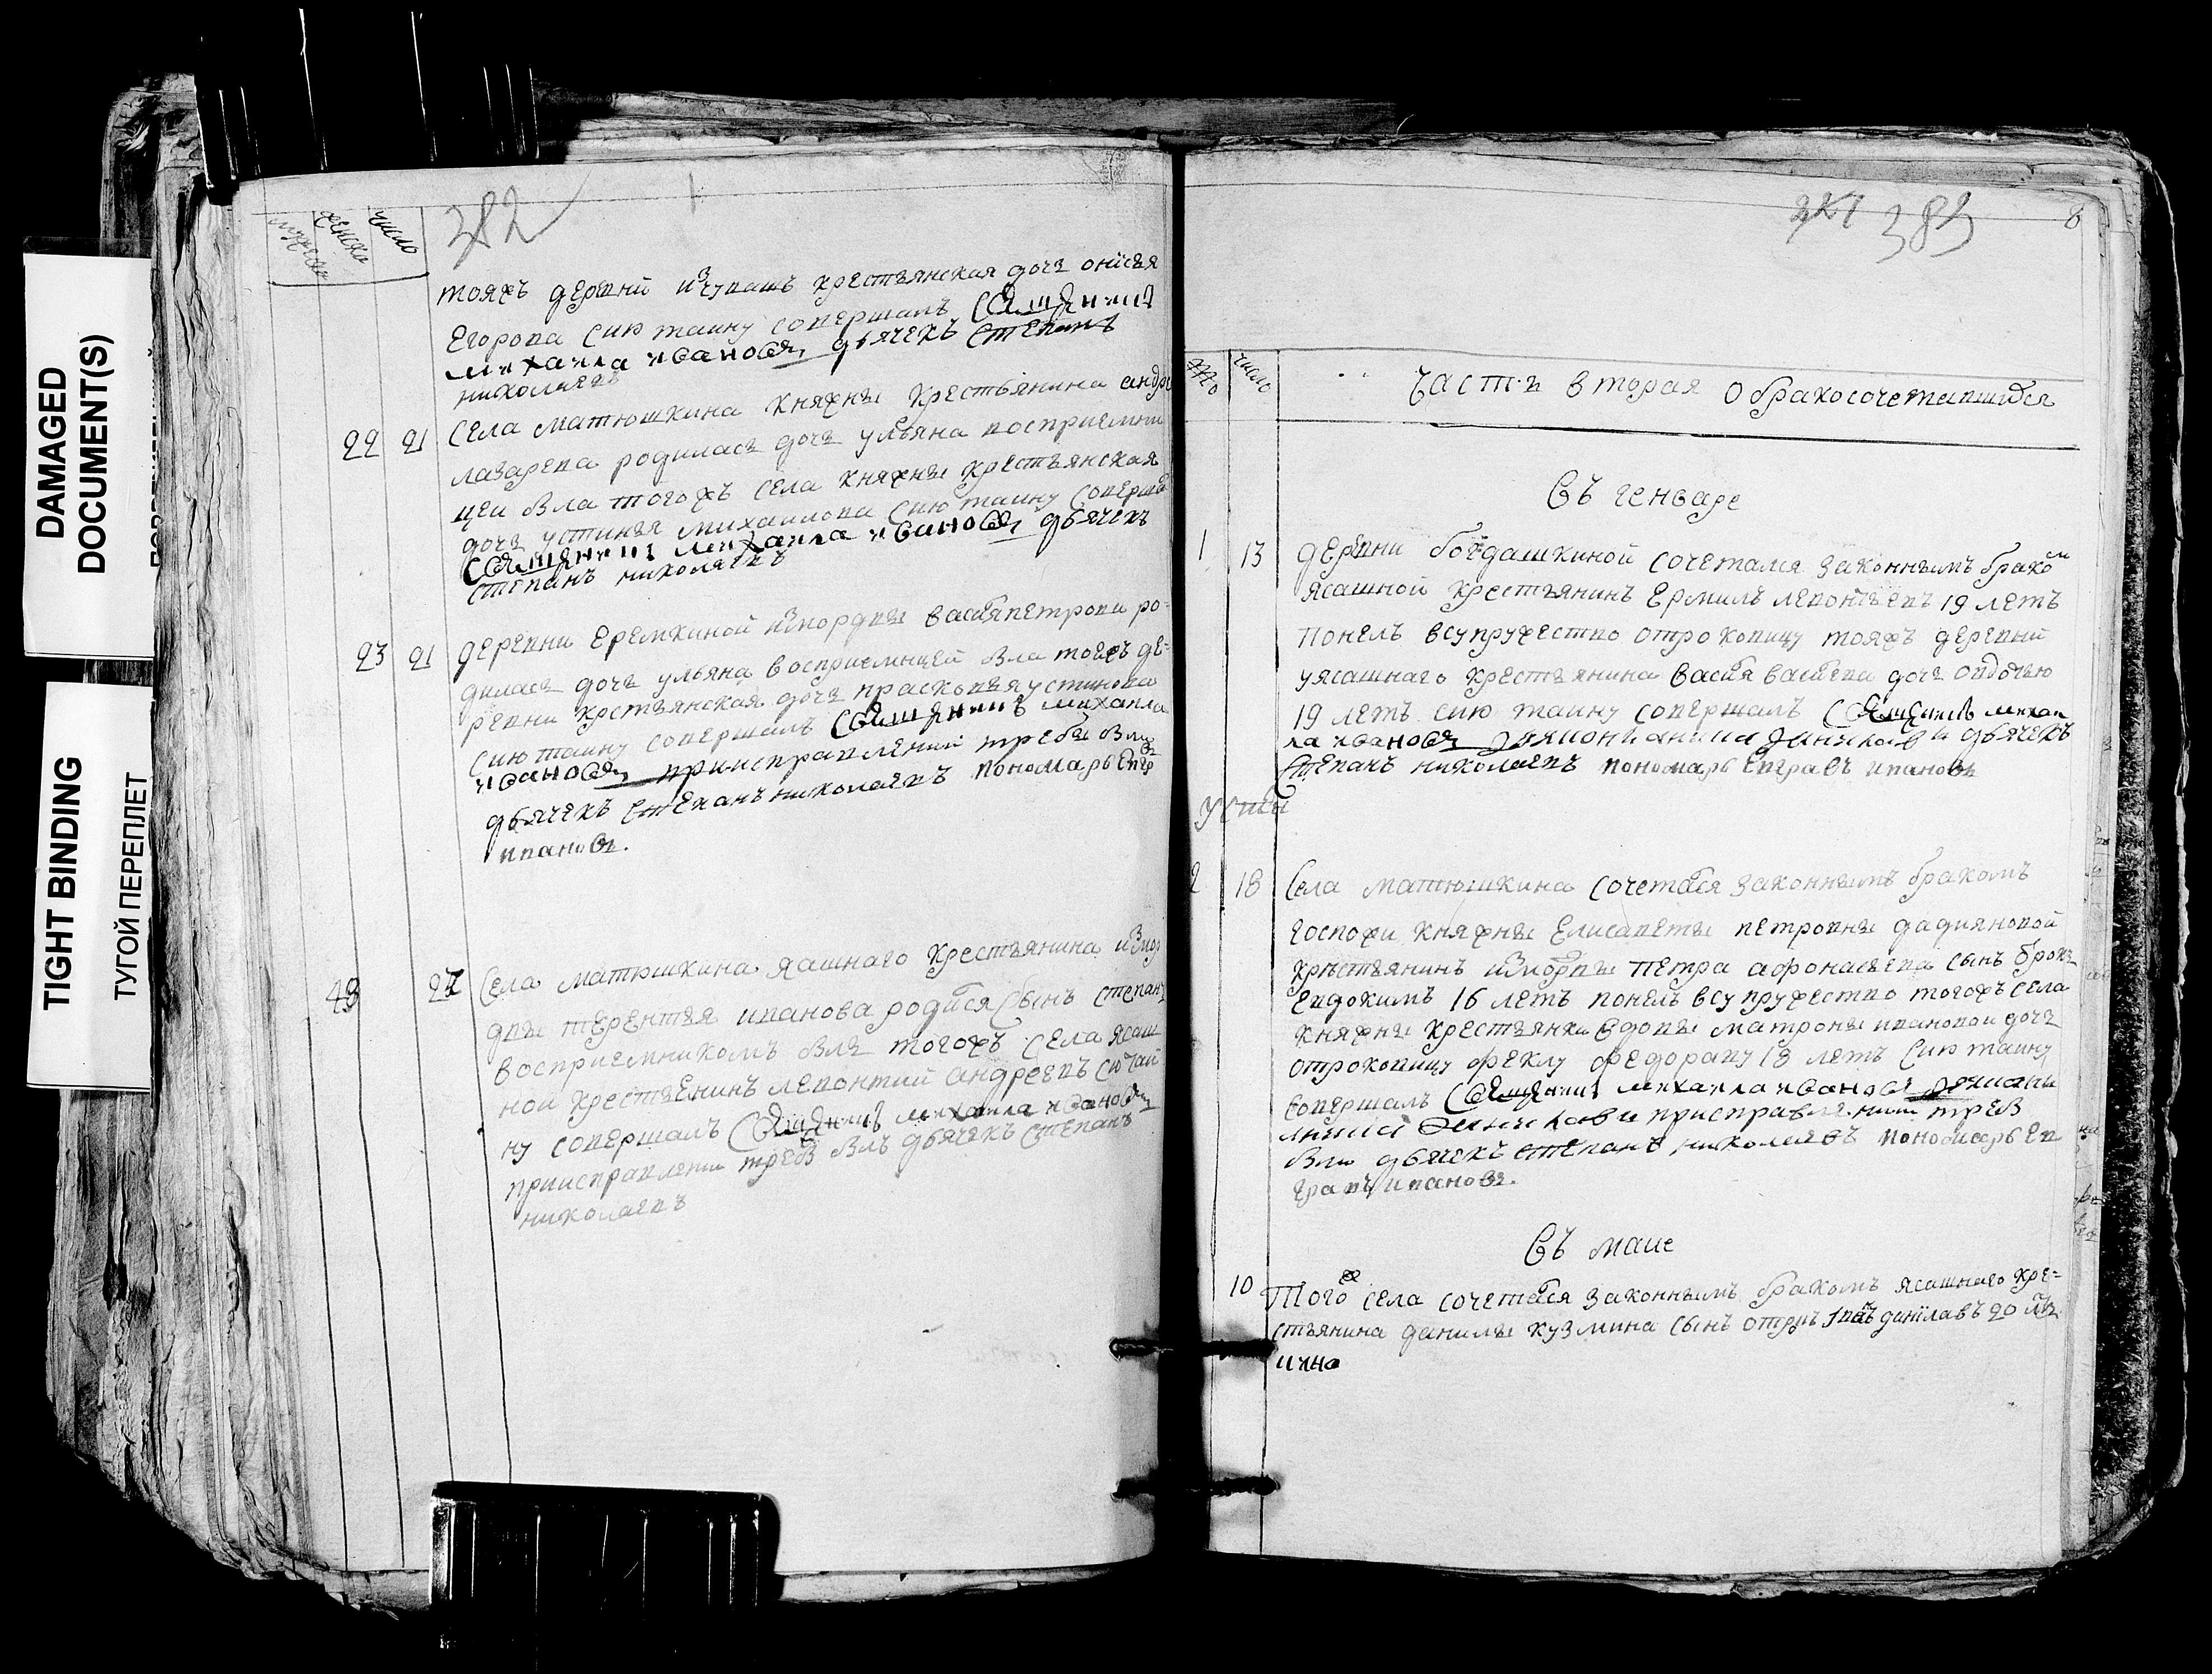 DAMAGED
DOCUMENT(S)
TIGHT BINDING
ТУГОЙ ПЕРЕПЛЕТ
мужеска
женска
число
382
тояжъ деревни изчувашъ крестьянская дочь онисья
Егорова сию таину совершалъ священникъ
михаила ивановъ дьячекъ степанъ
николаевъ
22 21 Села матюшкина княжны крестьянина андр
лазарева родилась дочь ульяна восприемни
цеи была тогожъ села княжны крестьянская
дочь устинья михаилова сию таину соверша
священникъ михаила ивановъ дьячекъ
степанъ николаевъ
23 21 деревни Еремкиной измордвы василя петрови ро=
дилась дочь ульяна восприемницей была тоежъ де=
ревни крстьянская дочь прасковья устинова
сию таину совершалъ священникъ михаила
ивановъ приисправлении требы были
дьячекъ степанъ николаевъ пономарь Евгр
ивановъ.
27 Села матюшкина яашнаго крестьянина измор
двы терентья иванова родился сынъ степанъ
восприемникомъ былъ тогожъ села ясаш
ной крестьенинъ левонтий андреевъ сю тай
ну совершалъ священникъ михаила ивановъ
приисправлени треб былъ дьячекъ степанъ
николаевъ
383
8
число
часть вторая о бракосочетавшихся
въ генваре
1 13 деревни богдашкиной сочетался законнымъ бракомъ
ясашной крестьянинъ Ермилъ левонтьевъ 19 летъ
понелъ всупружество отроковицу тояжъ деревни
уясашнаго крестьянина василя васлева дочь овдотью
19 летъ сию таину совершалъ священникъ михаи
ла ивановъ и дьячекъ
степанъ николаевъ пономарь Евгравъ ивановъ
2 18 Села матюшкина сочетался законнымъ бракомъ
госпожи княжны Елисаветы петровны дадияновой
крѣстьянинъ измордвы петра афонасьева сынъ
Евдокимъ 16 летъ понелъ всупружество тогожъ села
княжны крестьянки вдовы матроны ивановой дочь
отроковицу феклу федораву 18 летъ сию таину
совершалъ священникъ михаила ивановъ
приисправлении треб
были дьячекъ степанъ николаевъ пономарь Ев
гравъ ивановъ.
въ маие
10 Того ж села сочетался законнымъ бракомъ ясашнаго кре=
стьянина данилы кузмина сынъ данилавъ 20 лѣтъ